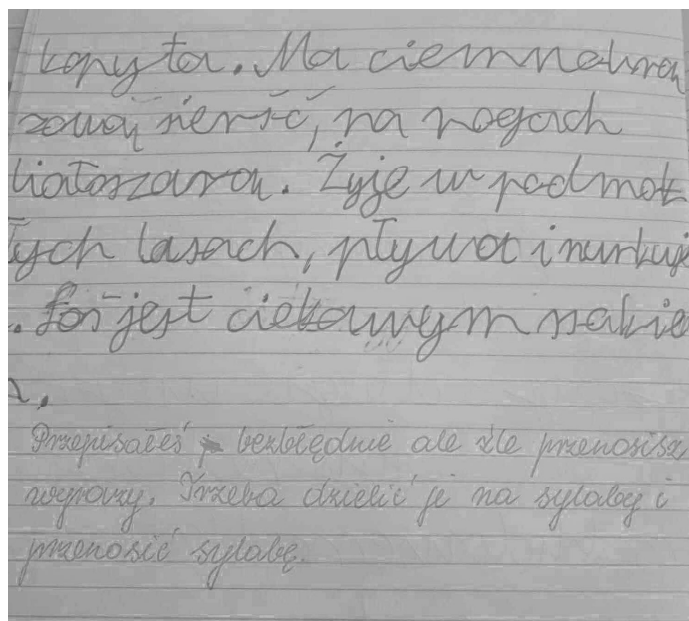 kopyta. Ma ciemnobrą
zową sierść, na nogach
białoszarą. Żyje w podmok
łych lasach, pływa i nurkuje
. Łoś jest ciekawym ssakie
m.
Przepisałeś bezbłędnie ale źle przenosisz
wyrazy. Trzeba dzielić je na sylaby i
przenosić sylabę.